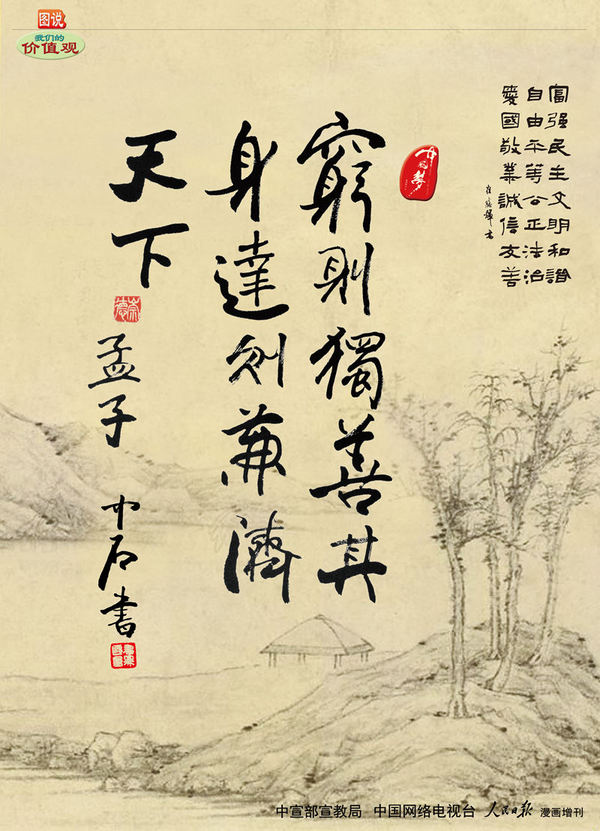 图说
我们的
价值观
富强民主文明和谐
自由平等公正法治
爱國敬業誠信友善
中国梦
窮則獨善其
身達則兼濟
天下
崇德
孟子
中石書
中宣部宣教局 中国网络电视台 人民日报 漫画增刊